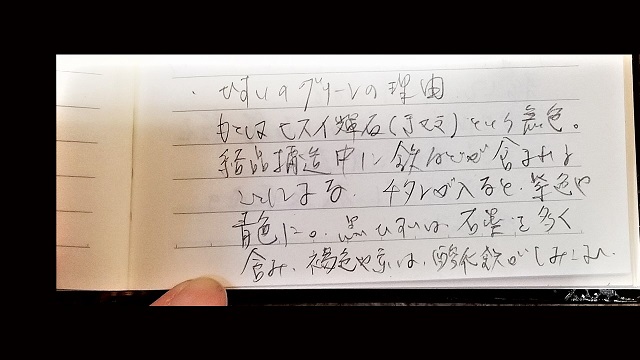 ・ひすいのグリーンの理由
もとはヒスイ輝石(　)という無色。
結晶構造中に鉄などが含まれる
ことによる。チタンが入ると、紫色や
青色に。黒ひすいは、石墨を多く
含み、褐色や赤は、酸化鉄がしみこみ、